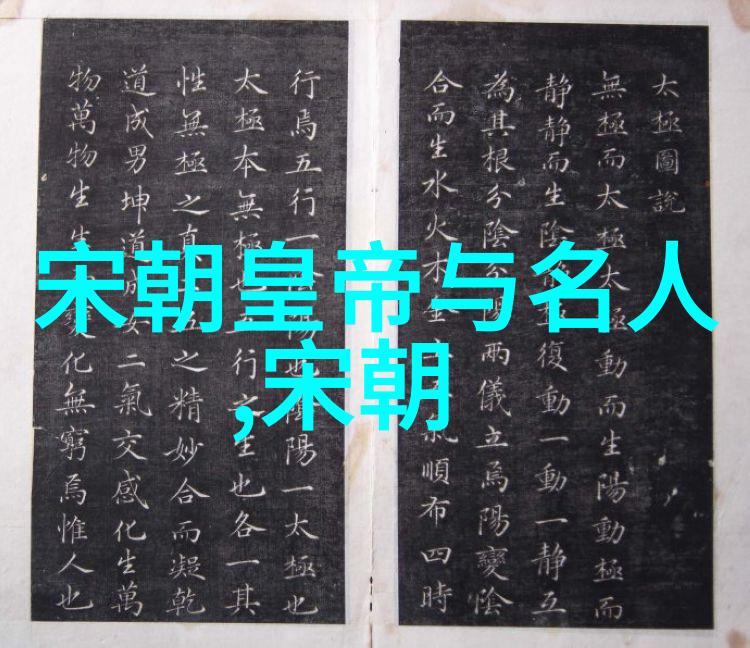 宋朝皇帝与名人
,宋朝
太極圖說
無極而太極太極動而生陽動極而
静静而生陰復動一動一静互
為其根分陰分陽兩儀立焉陽變陰
合而生水火木金氣順布四時
行焉五行一陰陽也陰陽一太極也
太極本無極也行之生也各一其
性無極之真五之精妙合而凝乾
道成男坤道成女二氣交感化生萬
物萬物生生變化無窮焉惟人也